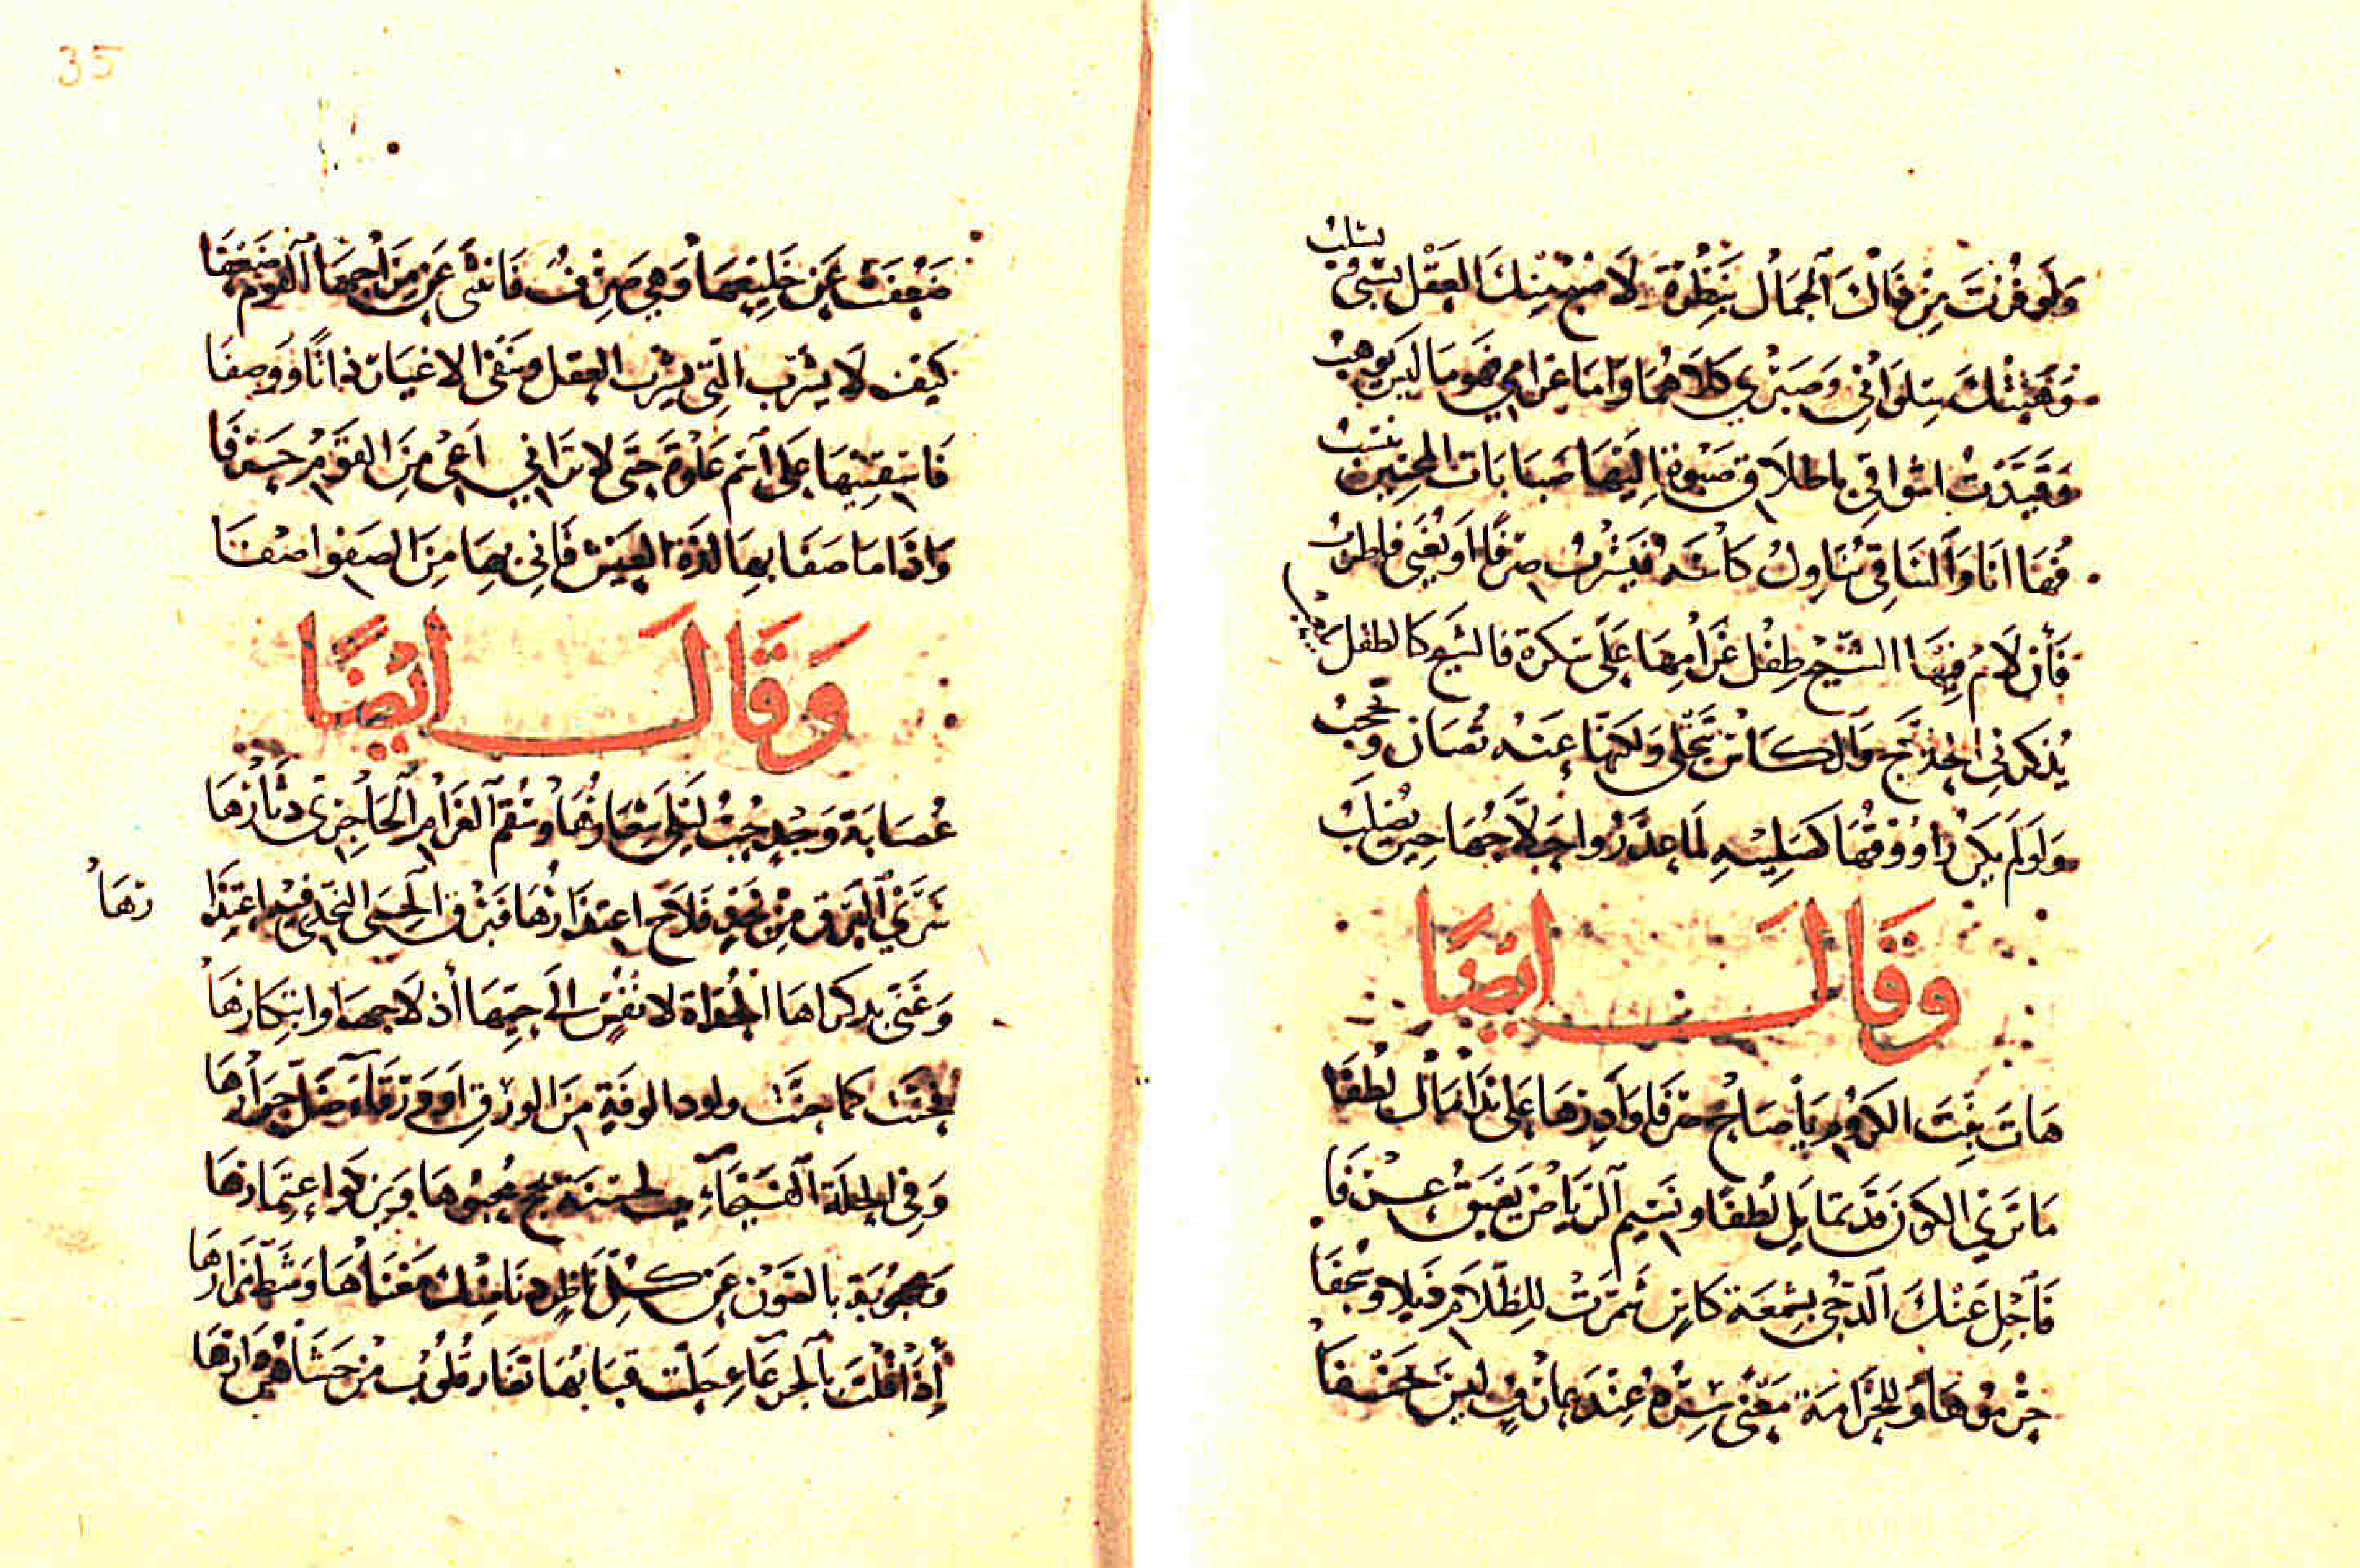 وَلَو فُزْتَ مِنْ ذَاكَ الجَمَالِ بِنَظْرَةٍ لَاصْبَحَ مِنْكَ العَقْل يسبى يسلب
وَهَبْتُكَ سِلوَانِي وَصَبْرِي كِلَاهُمَا وَامَا غرَامِي فَهوَ مَا لَيسَ يُوهبُ
وَقَيَّدْتُ اشواقى باطلاق صَبْوَةٍ اِلَيْهَا صَبَابَات المحبين تنسب
فَهَا انَا وَالسَاقِى يُنَاوِلُ كَأْسَهُ فَيَشْرَبُ صِرْفًا اَو يُغَنِى فاطربُ
فَأن لَامُ فِيهَا الشَيخُ طِفْل غَرَامِهَا عَلَى سَكرة فالشيخ كالطفل
يُذكرنى اخذى وَالكَاسُ تُجْلَى وَلكنهَا عَنْهُ تُصَان وتُحجبُ
وَلَو لَم يكن ذَاوُوْقهَا كَصَلِيبِهِ لَمَا عذَرُوا حَلَّاجهَا حِين يُصْلَبُ
وَقَالَ ايْضًا
هَاتَ بِنْتَ الكرُومِ يَا صَاحِ صِرْفَا وَأَدِرْهَا عَلى نَدَامَاكَ لُطفَا
مَا تَرَى الكونَ قَدْ تمَايَل لُطفًا ونَسِيم الرِيَاضِ يَعْبَقُ عرْفَا
فَاجْل عَنْكَ الدُجَى بِشمعَة كَاسٍ شَمَّرَتْ لِلظَّلَامِ ذَيلا وَسجْفَا
حَرّمُوهَا وَلِلحَرَامَة مَعْنًى سِرُّهُ عِنْدَ عارفٍ ليسَ يَخْفَا
35
ضَعُفَتْ عَن خَلِيعِهَا وَهِي صِرْفُ فَانثنى عَن مِزَاجِهَا القوم ضَعْفَا
كيف لَا يشرَب الَّتِى يشرَب العقل وتنفى الاغيار ذاتًا وَوَصفَا
فَاسْقِنِيهَا عَلى اسم عَلْوَةَ حَتى لا ترَانِي اَعِى مِنَ القَوْمِ حَرْفَا
وَاذَا مَا صَفَا بهَا لذة العَيْش فَانِى بِهَا مِنَ الصَفو اصْفَا
وَقَالَ ايْضًا
عُصَابَة وَجْدٍ حُبُّ لَيْلَى شِعَارُهَا وسُقم الغَرَامِ الحَاجِرى دِثَارُهَا
سَرَى البَرق مِنْ نَجْدٍ فَلَاحَ اعتذارُهَا فَبَرْق الحِمَى النجدى فيه اعتِذَا رهَا
وَغَنّى بذكراهَا الحُدَاة لانفُس الَى حَيّهَا ادلَاجهَا وَابتكارُهَا
فحنت كما حنَّت ولود الوفية مِنَ الورقِ اَو وَرْقَاء ضَلَّ جِوَارُهَا
وَفِى الحلة الفَيْحَاءِ بيت لحسْنِهِ يَحج مُحِبُّوهَا وَيزكو اعتِمَارهَا
وَمحْجُوبَة بالصَوْن عَن كُلِّ نَاظرٍ دنَا مِنْكَ مَغْنَاهَا وَشَطَّ مَزَارهَا
إذَا اقْبلتْ بالجرعَاءِ حَلّت قبَابُهَا تغَارُ قلُوبٌ مِنْ حَشَاهُنَّ دَارُهَا